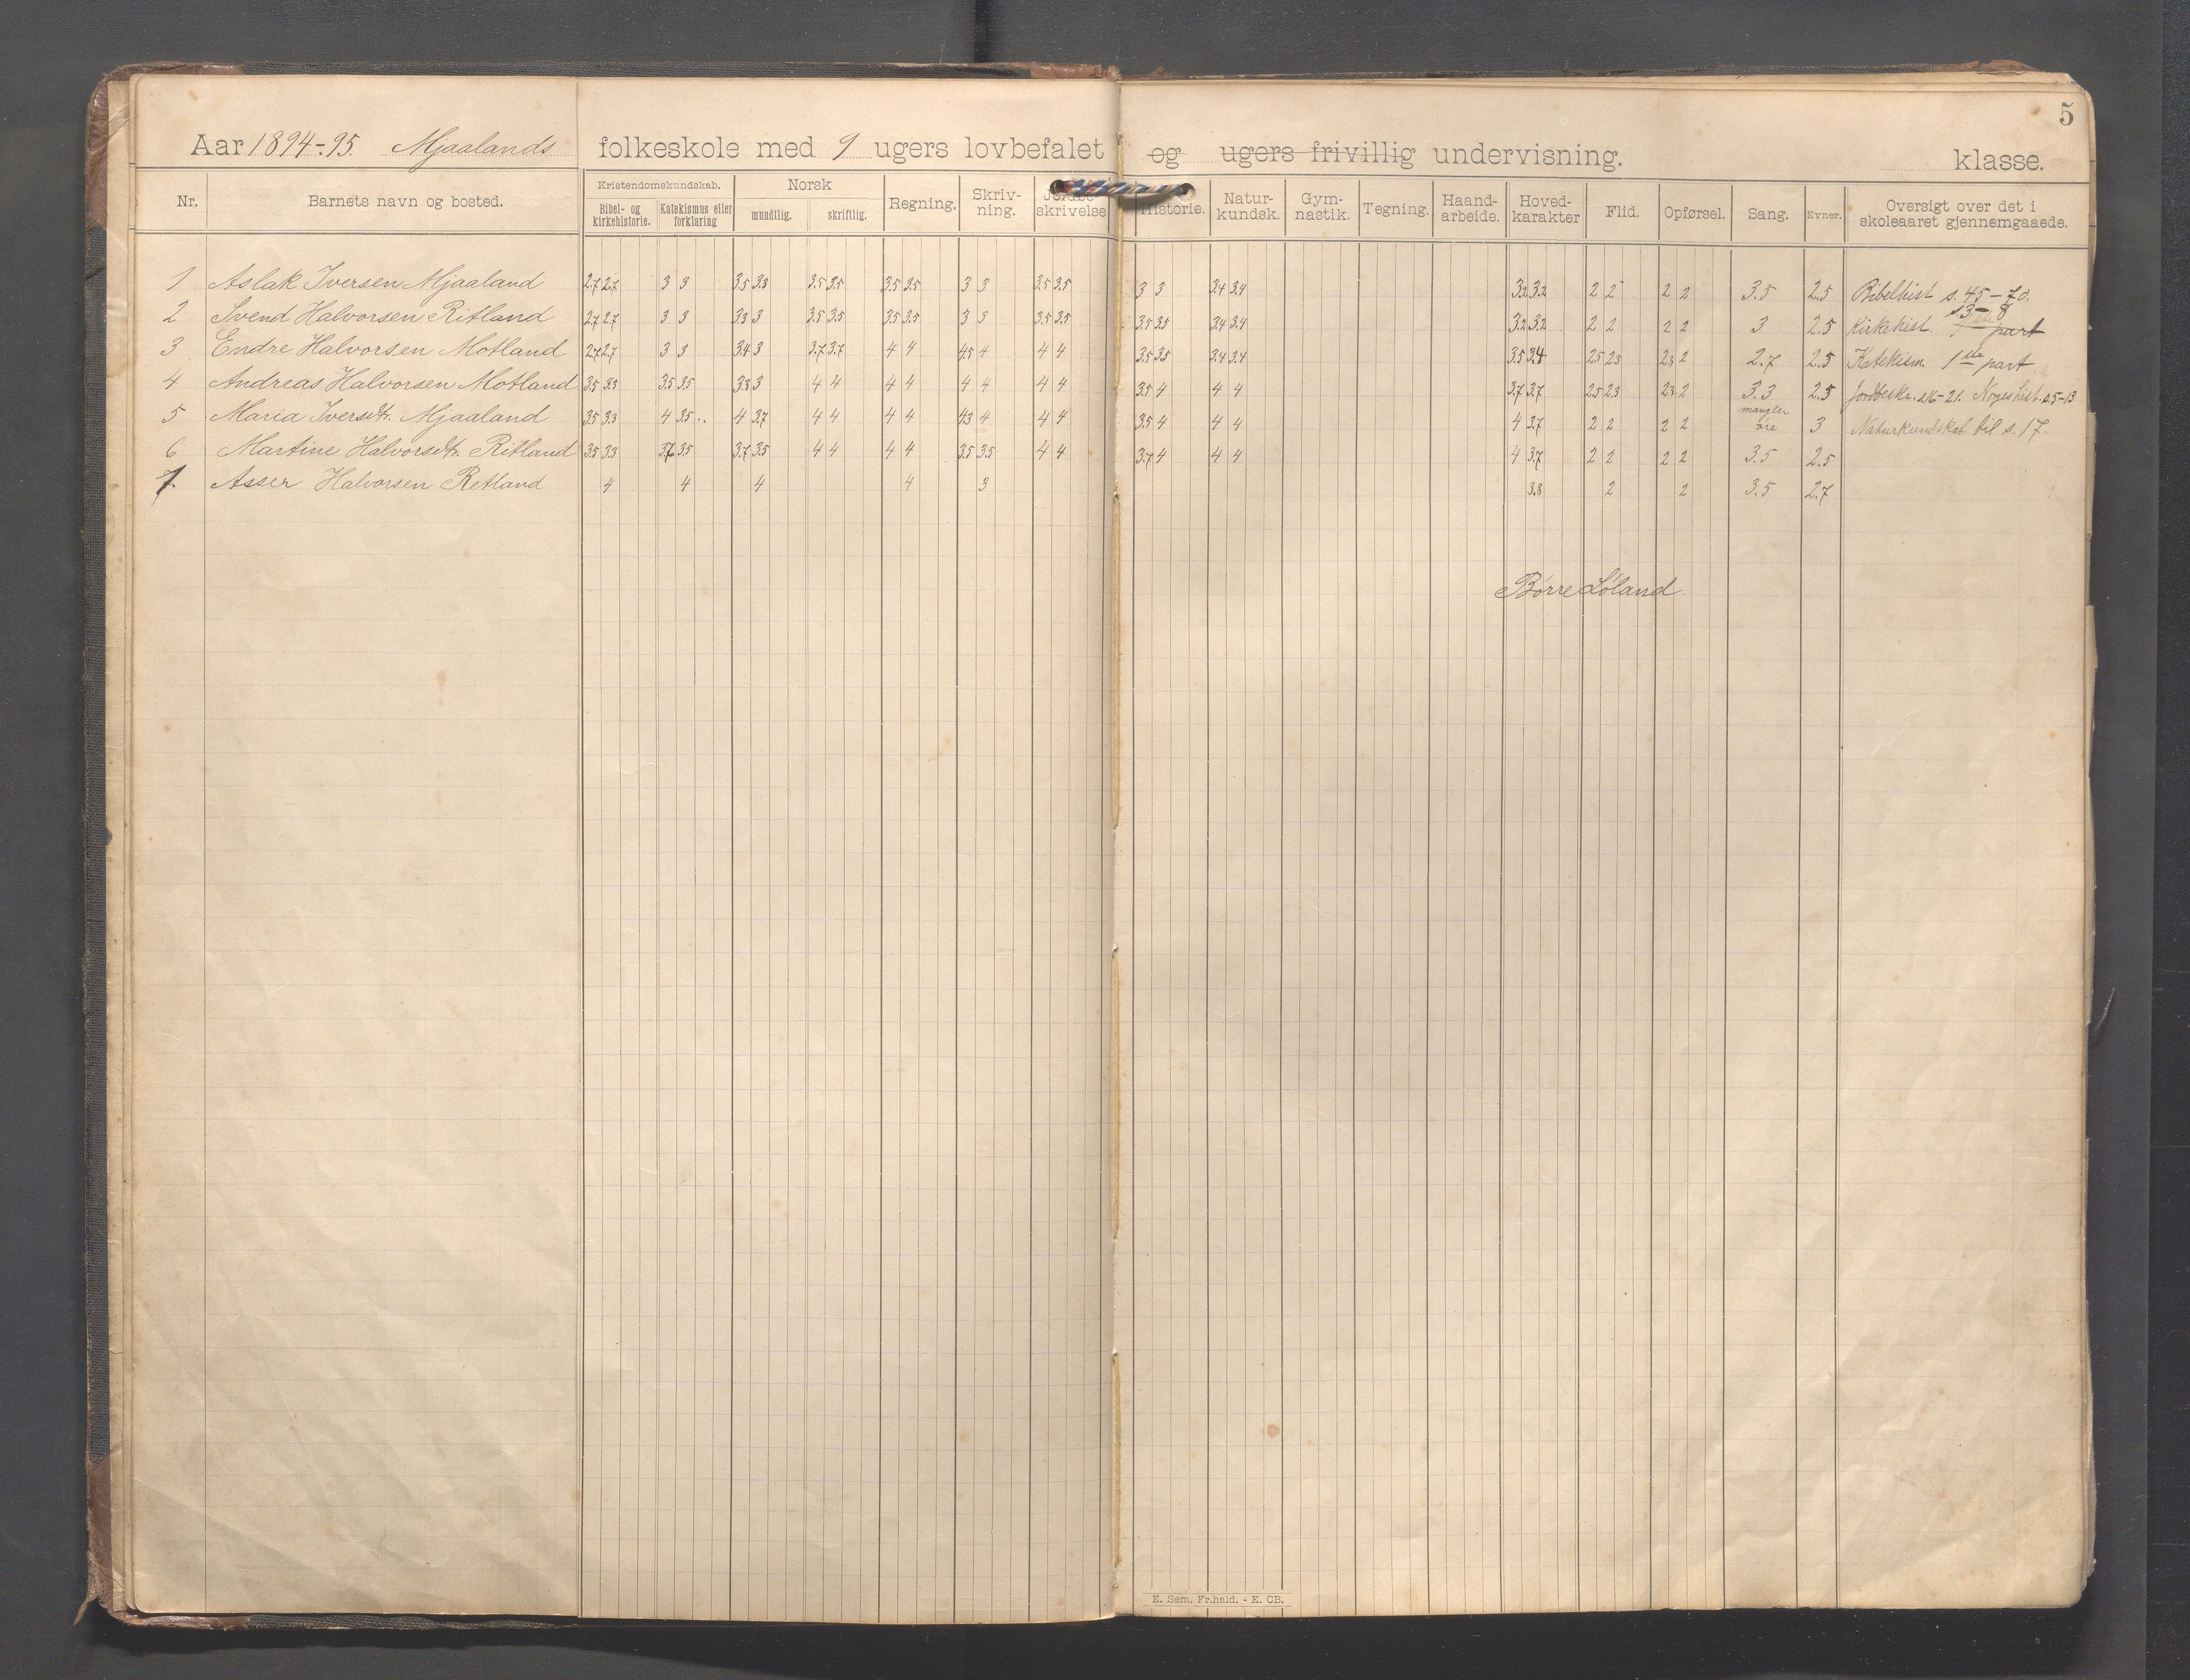 5
Aar 1894-95. Mjaalands folkeskole med 9 ugers lovbefalet og ugers frivillig undervisning. klasse.
Nr. Barnets navn og bosted. Kristendomskundskab. Norsk Regning. Skriv-ning. skrivelse Historie. Natur-kundsk. Gym-nastik. Tegning. Haand-arbeide. Hoved-karakter Flid. Opførsel. Sang. Evner. Oversigt over det i skoleaaret gjennemgaaede.
Bibel- og kirkehistorie. Katekismus eller forklaring mundtlig. skriftlig.
1 Aslak Iversen Mjaaland 2.7 2.7 3 3 3.5 3.3 3.5 3.5 3.5 3.5 3 3 3.5 3.5 3 3 3.4 3.4 3.2 3.2 2 2 2 2 3.5 2.5 Bibelhist s. 45-70.
2 Svend Halvorsen Ritland 2.7 2.7 3 3 3.3 3 3.5 3.5 3.5 3.5 3 3 3.5 3.5 3.5 3.5 3.4 3.4 3.2 3.2 2 2 2 2 3 2.5 Kirkehist. s. 3-8 part
3 Endre Halvorsen Motland 2.7 2.7 3 3 3.4 3 3.7 3.7 4 4 4.5 4 4 4 3.5 3.5 3.4 3.4 3.5 3.4 2.5 2.3 2.3 2 2.7 2.5 Katekism. 1ste part
4 Andreas Halvorsen Motland 3.5 3.3 3.5 3.5 3.3 3 4 4 4 4 4 4 4 4 3.5 4 4 4 3.7 3.7 2.5 2.3 2.3 2 3.3 2.5 Jordbeskr. s. 16-21. Norgeshist. s. 5-13
5 Maria Iversdtr. Mjaaland 3.5 3.3 4 3.5 4 3.7 4 4 4 4 4.3 4 4 4 3.5 4 4 4 4 3.7 2 2 2 2 mangler øre 3 Naturkundskab til s. 17.
6 Martine Halvorsdtr. Ritland 3.5 3.3 3.7 3.5 3.7 3.5 4 4 4 4 3.5 3.5 4 4 3.7 4 4 4 4 3.7 2 2 2 2 3.5 2.5
7. Asser Halvorsen Retland 4 4 4 4 3 3.8 2 2 3.5 2.7
Børre Løland.
E. Sem, Fr.hald. - E. CB.